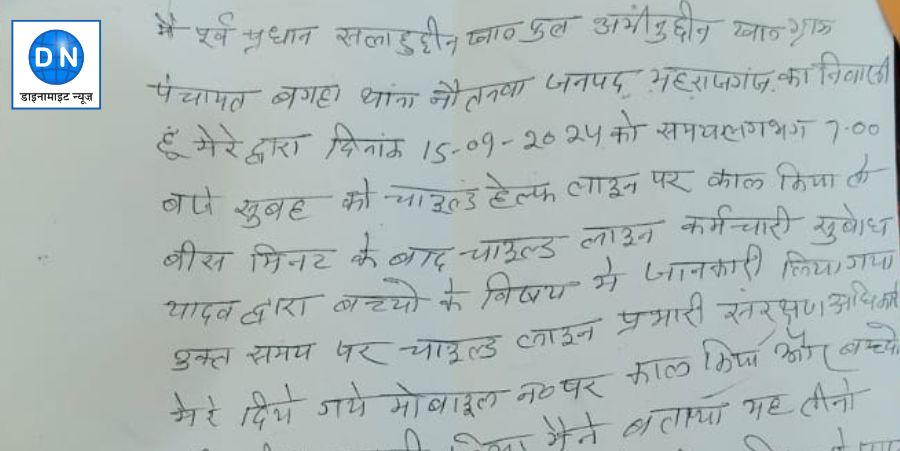 DN
डाइनामाइट न्यूज़
मै पूर्व प्रधान सलाहुद्दीन खान पुत्र अमीनुद्दीन खान ग्राम
पंचायत बगहा थाना नौतनवा जनपद महराजगंज का निवासी
हूं मेरे द्वारा दिनांक 15-09-2024 को समय लगभग 7.00
बजे सुबह को चाइल्ड हेल्फ लाइन पर काल किया
बीस मिनट के बाद चाइल्ड लाइन कर्मचारी सुबोध
यादव द्वारा बच्चो के विषय मे जानकारी लिया गया
उक्त समय पर चाइल्ड लाइन प्रभारी संरक्षण अधिकारी
मेरे दिये गये मोबाइल न० पर काल किया और बच्चो
मैने बताया यह तीनो